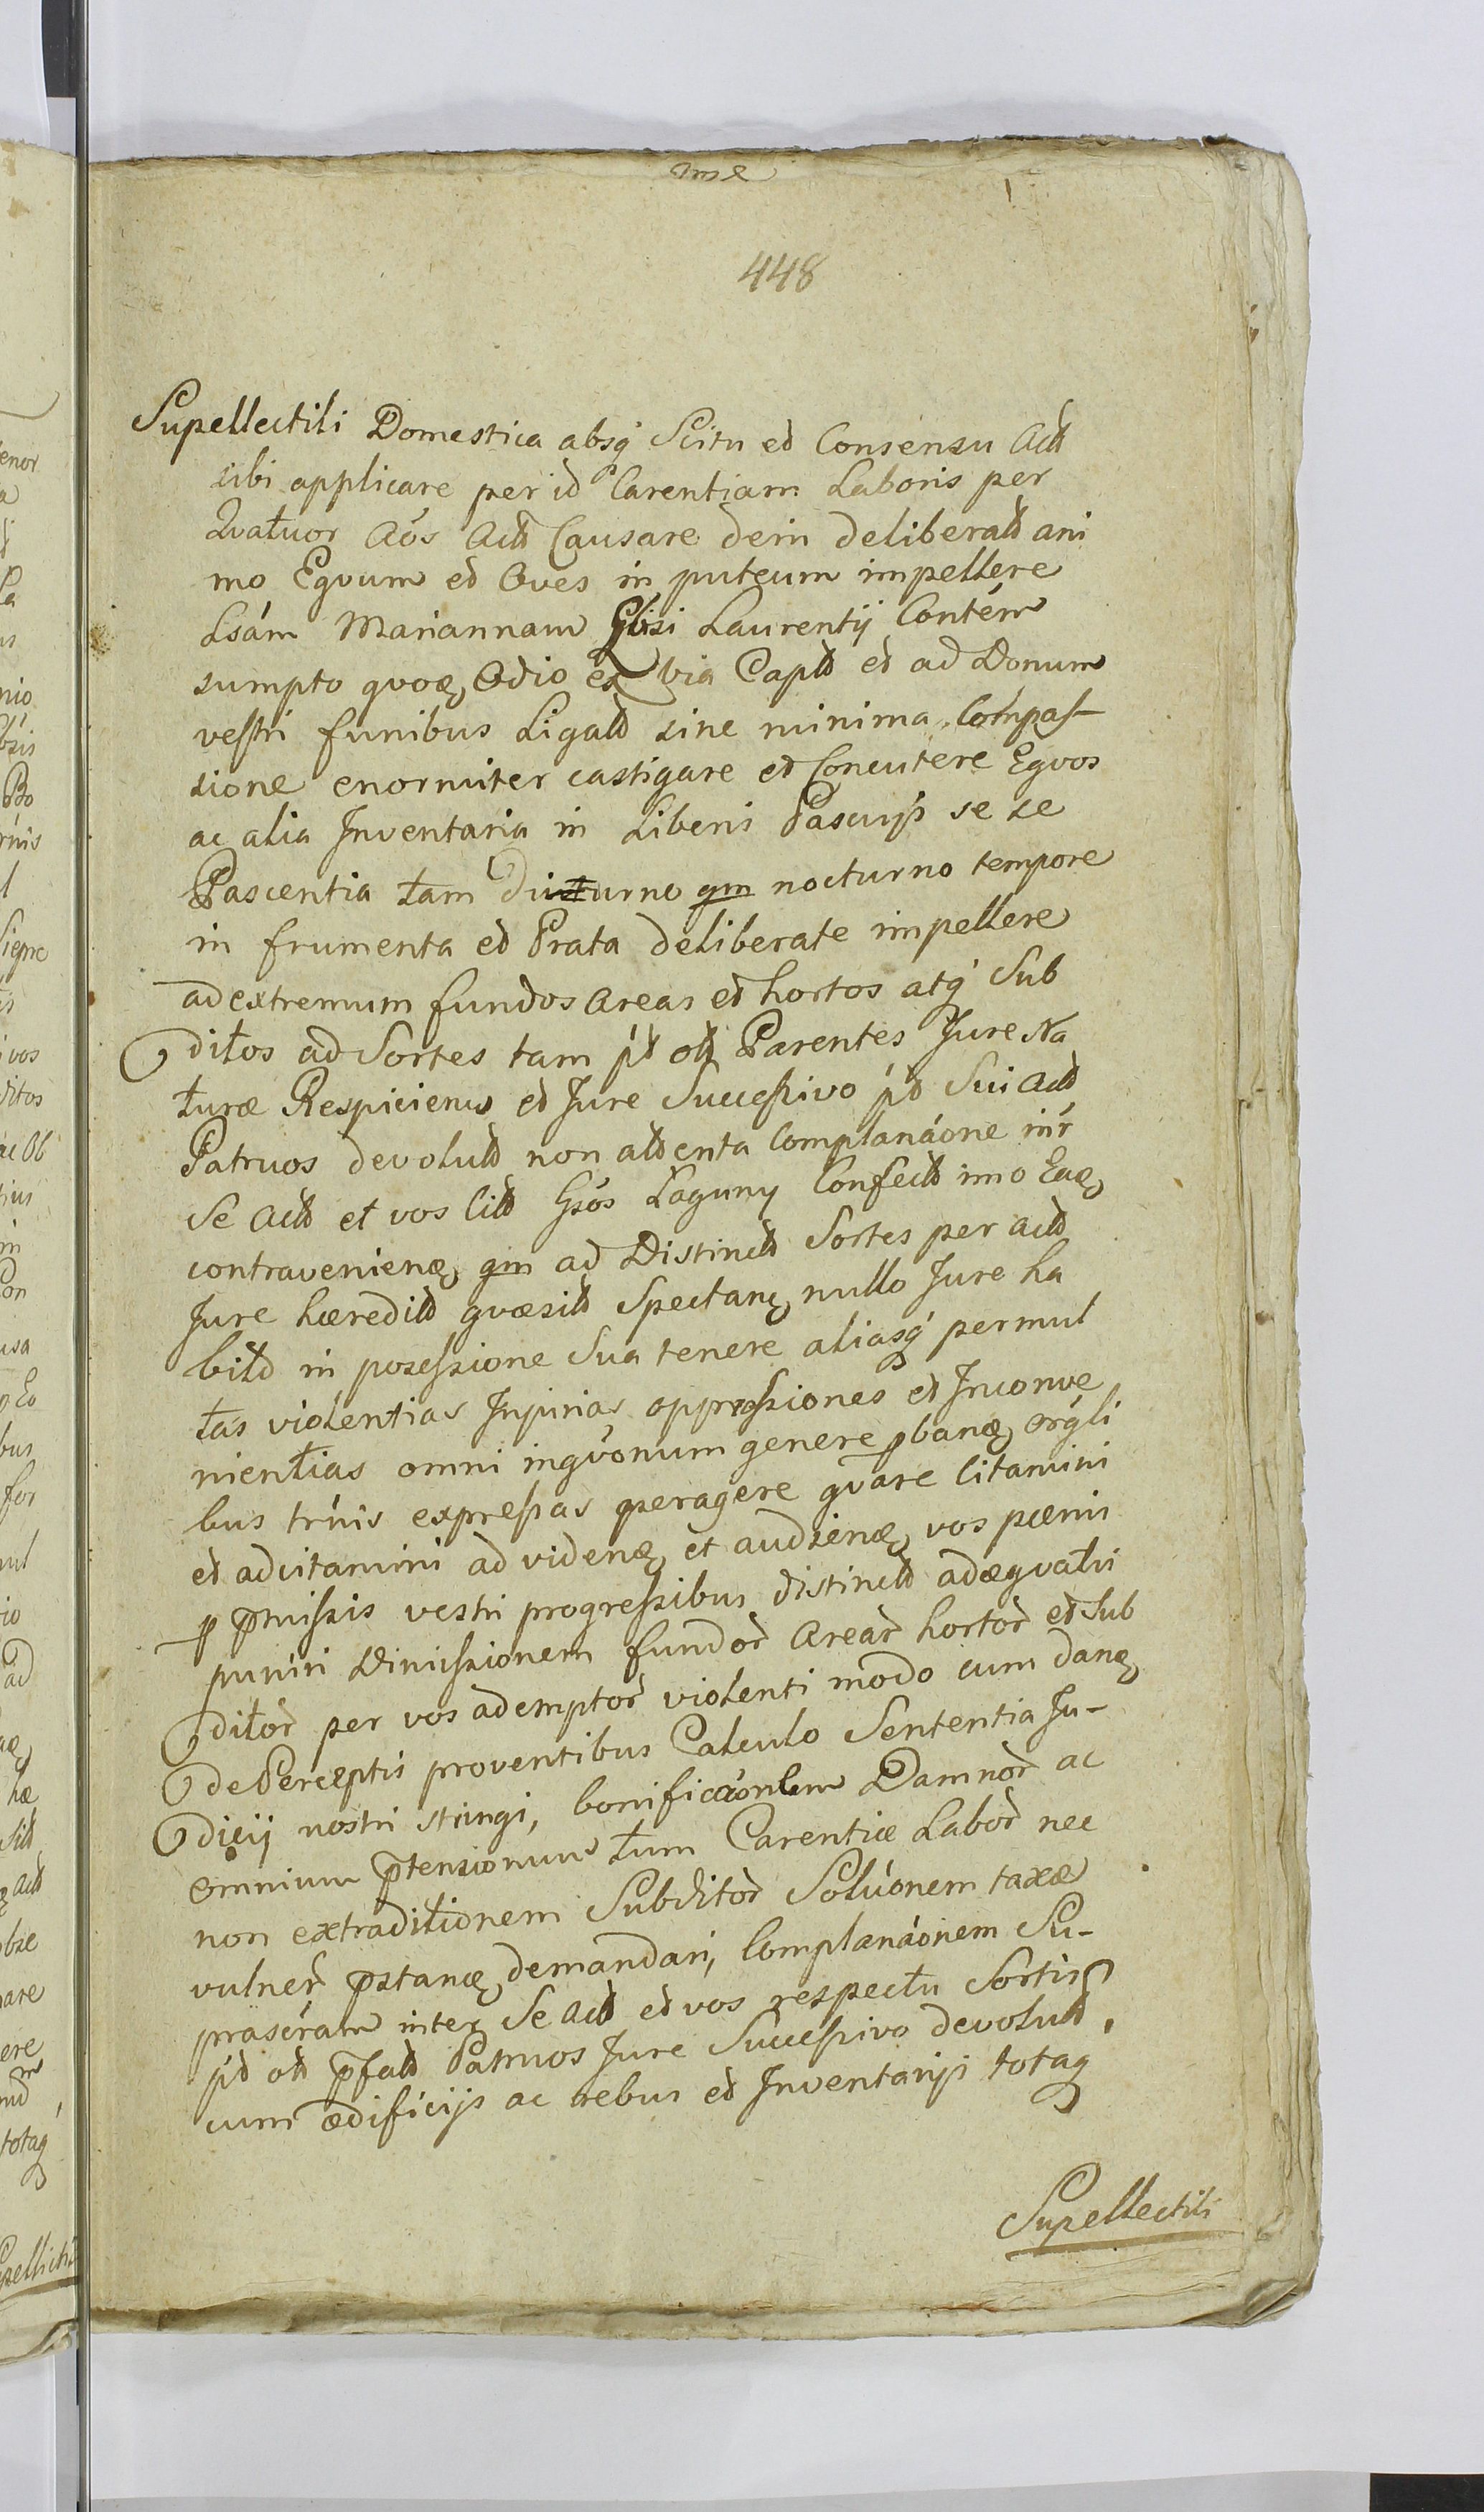 448
Supellectili Domestica absq́ Scitu ed Consensu Actt
sibi applicare per id Carentiam Laboris per
Qvatuor Aós Actt Causare dein deliberatt ani
mo Eqvum ed Oves in puteum impellere
Lsám Mariannam Gbisi Laurentij Contém
sumpto qvoq, Odio ex via Captt ed ad Donum
vestri funibus Ligatt sine minima Compas-
sione enormiter castigare ed Concutere Eqvos
ac alia Inventaria in Liberis Pascuys se se
Pascentia tam diuturno qm nocturno tempore
in frumenta ed Prata deliberate impellere
ad extremum fundos Areas ed hortos atq́ Sub
ditos ad Sortes tam pd ott Parentes Jure Na
turæ Respiciens ed Jure Successivo pd Sui Actt
Patruos devolutt non attenta Complanáone inr
Se Actt et vos Citt Gsós Laguny Confectt imo Eaq,
contravenienq, qm ad Distinctt Sortes per actt
Jure hæreditt qvæsitt Spectanq, nullo Jure ha
bitd in posessione Sua tenere aliasq́ permul
tas violentias Injurias oppressiones et Inconve
nientias omni inqvonum genere pbanq, orgli
bus trúis expressas peragere qvare Citamini
ed adcitamini ad videnq, et audienq, vos pœnis
p pmissis vestri progressibus distinctt adæqvatis
puniri Dimissionem fundor Arear hortor ed Sub
ditor per vos ademptor violenti modo cum danq,
de Perceptis proventibus Calculo Sententia Ju-
dicij nostri stringi, bonificáonem Damnor ac
omnium ptensionum tum Carentiæ Labor nec
non extraditionem Subditor Solúonem taxæ
vulner pstanq, demandari, Complanáonem Su-
prascram inter Se Actt ed vos respectu Sortis
pd ott pfatt Patruos Jure Successivo devolutt,
cum ædificijs ac rebus ed Inventarijs totaq
Supellectili